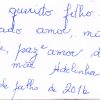 quarto filho
ado amor, m
e, paz e amor d
mãe Adelinha
de julho de 2016